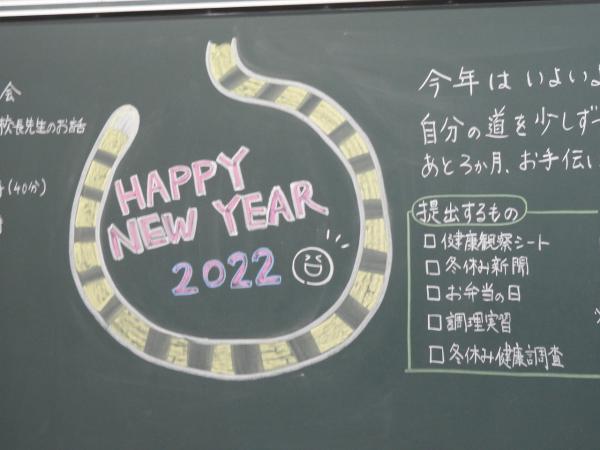 会
校長先生のお話
(40分)
HAPPY
NEW YEAR
2022
今年はいよいよ
自分の道を少しずつ
あと3か月、お手伝い
提出するもの
□健康観察シート
□冬休み新聞
□お弁当の日
□調理実習
□冬休み健康調査